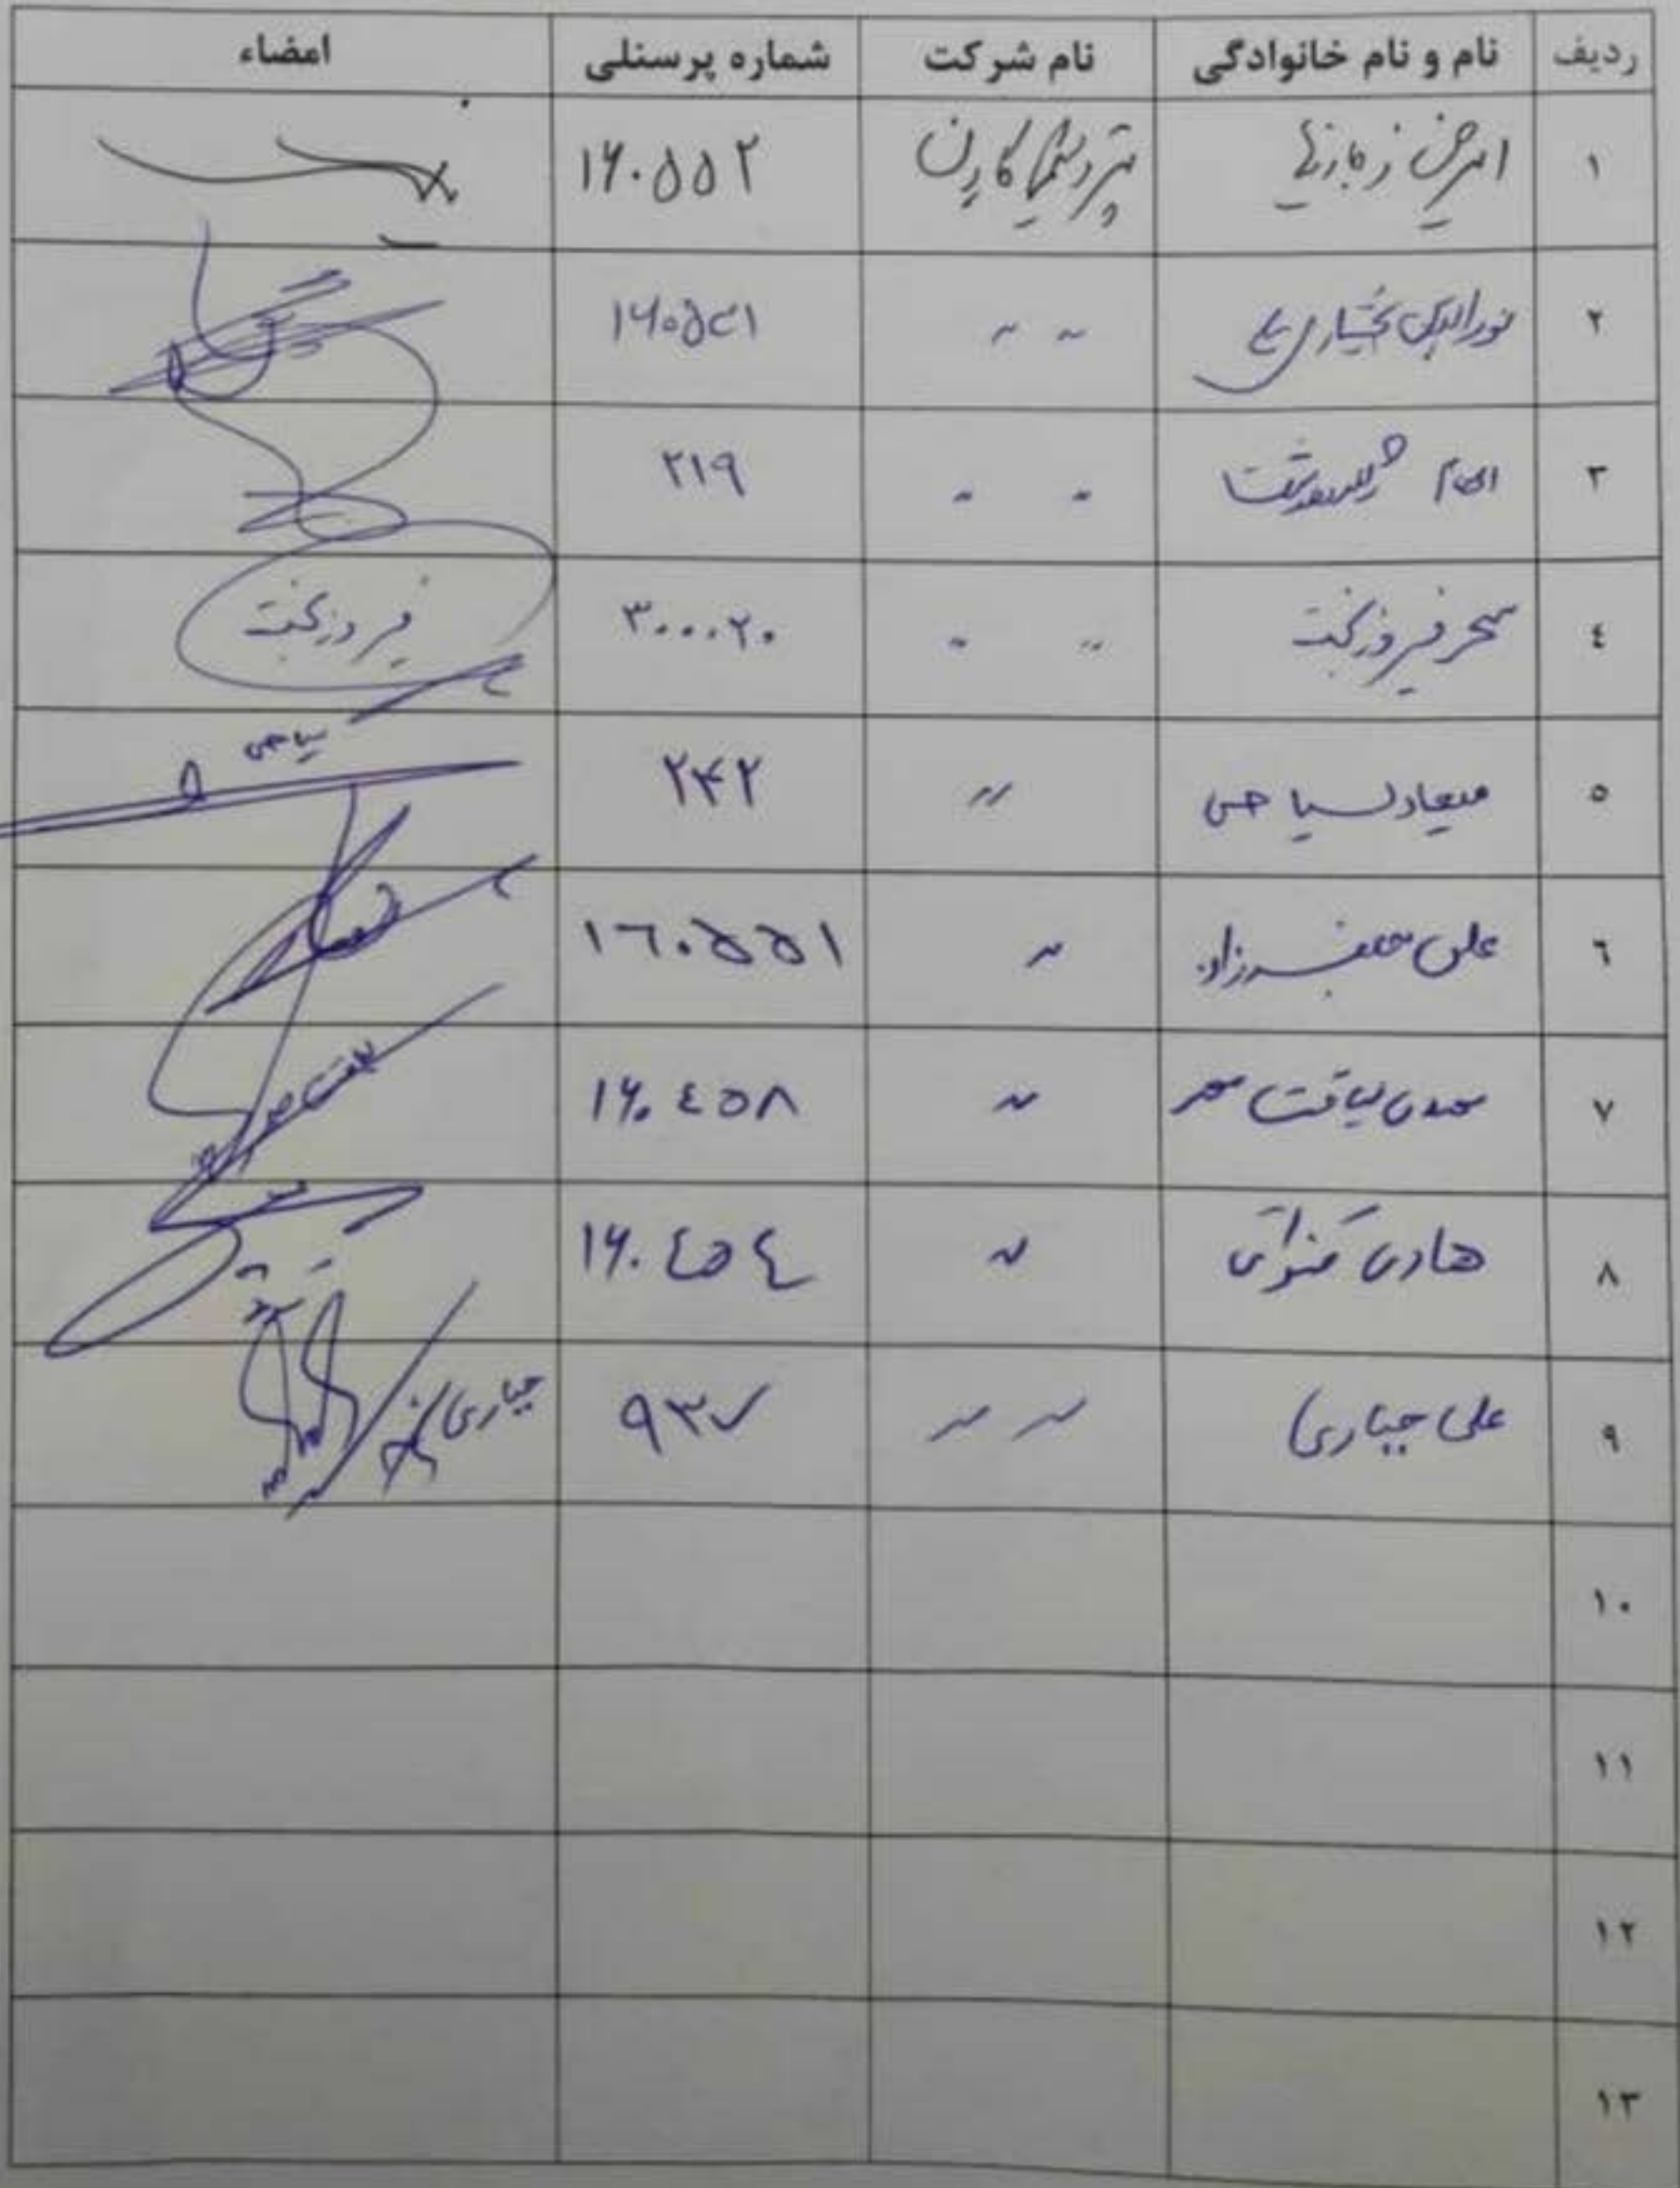 ردیف نام و نام خانوادگی نام شرکت شماره پرسنلی امضاء
۱ پتروشیمی کارون ۱۶۰۵۵۲
۲ نورالدین بختیاری " "
۳ الهام " " ۲۱۹
۴ سحر فیروزبخت " " ۳۰۰۰۲۰ فیروزبخت
۵ میعاد سیاحی " ۲۴۲ سیاحی
۶ علی " ۱۶۰۵۵۱
۷ مهدی لیاقت مهر " ۱۶۰۴۵۸
۸ هادی " ۱۶۰۴۵۴
۹ علی جباری " " ۹۳۷ جباری
۱۰
۱۱
۱۲
۱۳